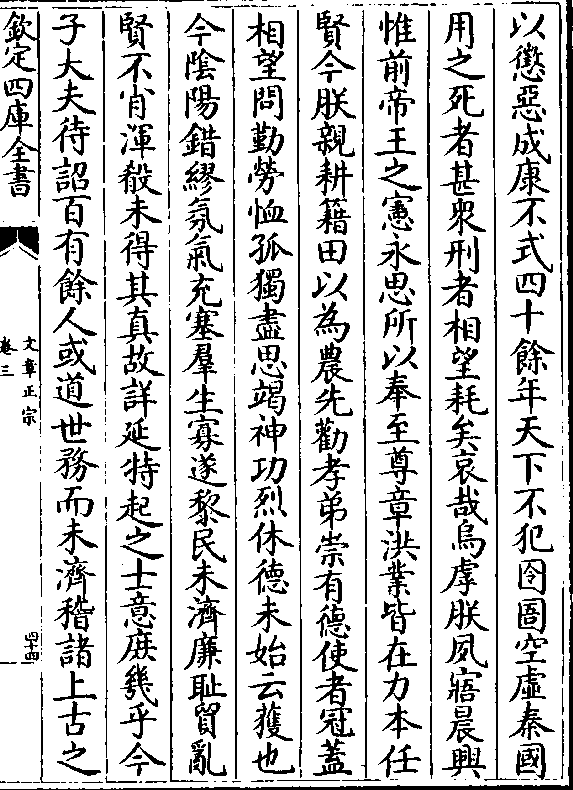 以懲惡成康不式四十餘年天下不犯囹圄空虛秦國
用之死者甚衆刑者相望耗矣哀哉烏虖朕夙寤晨興
惟前帝王之憲永思所以奉至尊章洪業皆在力本任
賢今朕親耕籍田以為農先勸孝弟崇有德使者冠蓋
相望問勤勞恤孤獨盡思竭神功烈休德未始云獲也
今陰陽錯繆氛氣充塞羣生寡遂黎民未濟廉恥貿亂
賢不肖渾殽未得其真故詳延特起之士意庶幾乎今
子大夫待詔百有餘人或道世務而未濟稽諸上古之
欽定四庫全書
文章正宗
卷三
四十四